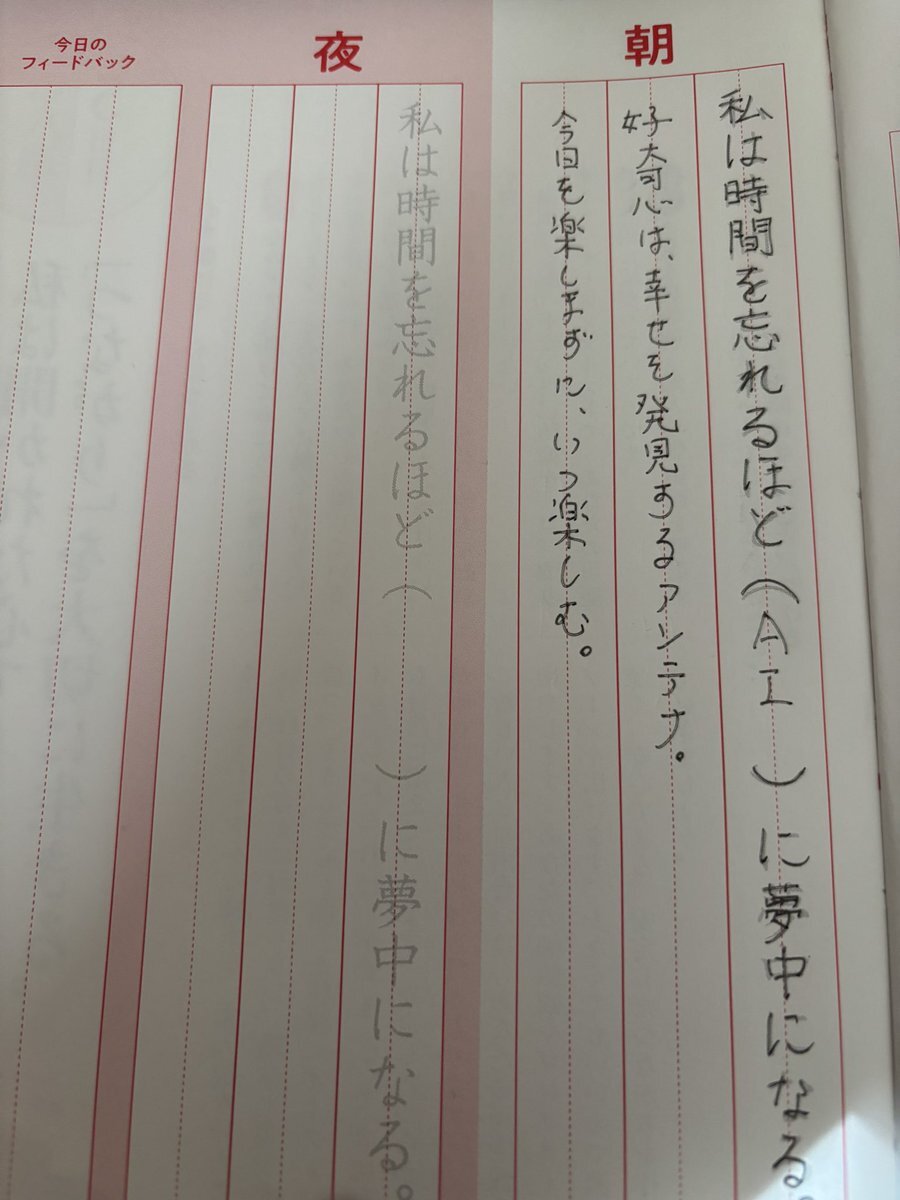 朝
私は時間を忘れるほど(AI)に夢中になる。
好奇心は、幸せを発見するアンテナ。
今日を楽しまずに、いつ楽しむ。
夜
私は時間を忘れるほど( )に夢中になる。
今日の
フィードバック